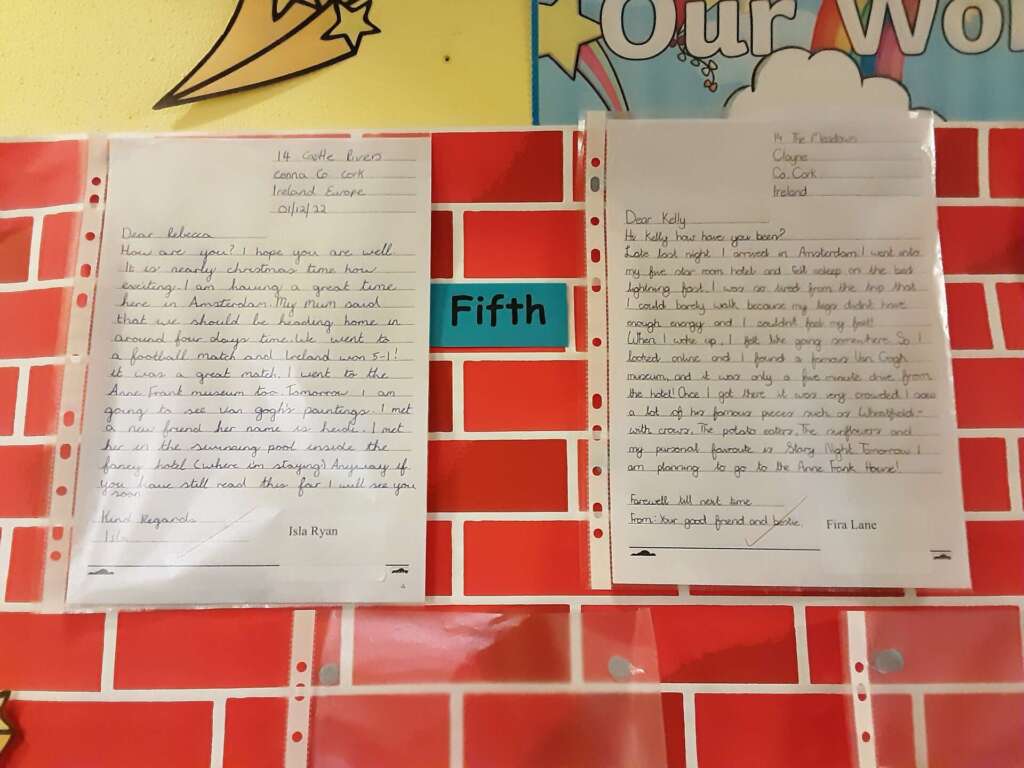 Our Wo
14 Castle Rivers
Conna Co. Cork
Ireland Europe
01/12/22
Dear Rebecca
How are you? I hope you are well.
It is nearly christmas time how
exciting. I am having a great time
here in Amsterdam. My Mum said
that we should be heading home in
around four days time. We went to
a football match and Ireland won 5-1!
it was a great match. I went to the
Anne Frank museum too. Tomorrow I am
going to see Van gogh's paintings. I met
a new friend her name is heidi. I met
her in the swimming pool inside the
fancy hotel (where im staying) Anyway if
you have still read this far I will see you
soon
Kind Regards
Isla
Isla Ryan
Fifth
14 The Meadows
Cloyne
Co. Cork
Ireland
Dear Kelly
Hi Kelly how have you been?
Late last night I arrived in Amsterdam. I went into
my five star room hotel and fell asleep on the bed
lightning fast. I was so tired from the trip that
I could barely walk because my legs didn't have
enough energy and I couldn't feel my feet!
When I woke up, I felt like going somewhere. So I
looked online and I found a famous Van Gogh
museum, and it was only a five minute drive from
the hotel! Once I got there it was very crowded I saw
a lot of his famous pieces such as Wheatfield-
with crows, The potato eaters, The sunflowers and
my personal favroute is Stary Night. Tomorrow I
am planning to go to the Anne Frank House!
Farewell till next time
From: Your good friend and bestie.
Fira Lane